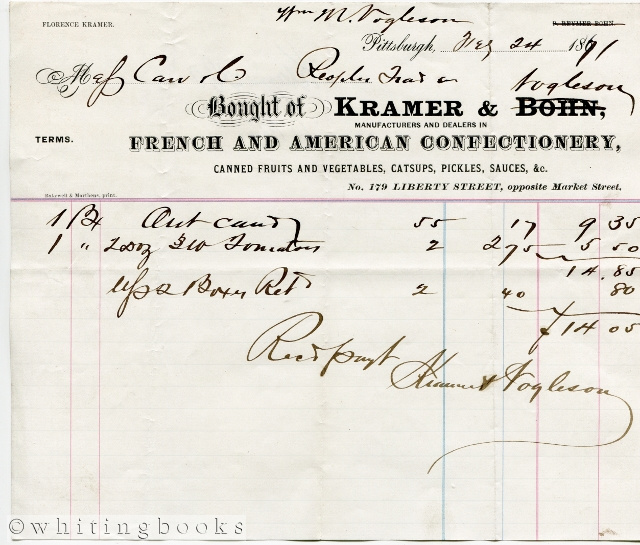 Wm M Vogleson
FLORENCE KRAMER. P. REYMER BOHN.
Pittsburgh, Feb 24 1871
M Carroll Peoples Trad Vogleson
Bought of KRAMER & BOHN,
MANUFACTURERS AND DEALERS IN
TERMS. FRENCH AND AMERICAN CONFECTIONERY,
CANNED FRUITS AND VEGETABLES, CATSUPS, PICKLES, SAUCES, &c.
No. 179 LIBERTY STREET, opposite Market Street.
Bakewell & Marthens, print.
1 Bx Cut candy 55 17 9 35
1 " 2 doz Tomatoes 2 2 75 5 50
14.85
2 Boxes Ret 2 40 80
14 05
Recd payt
Kramer & Vogleson
©whitingbooks